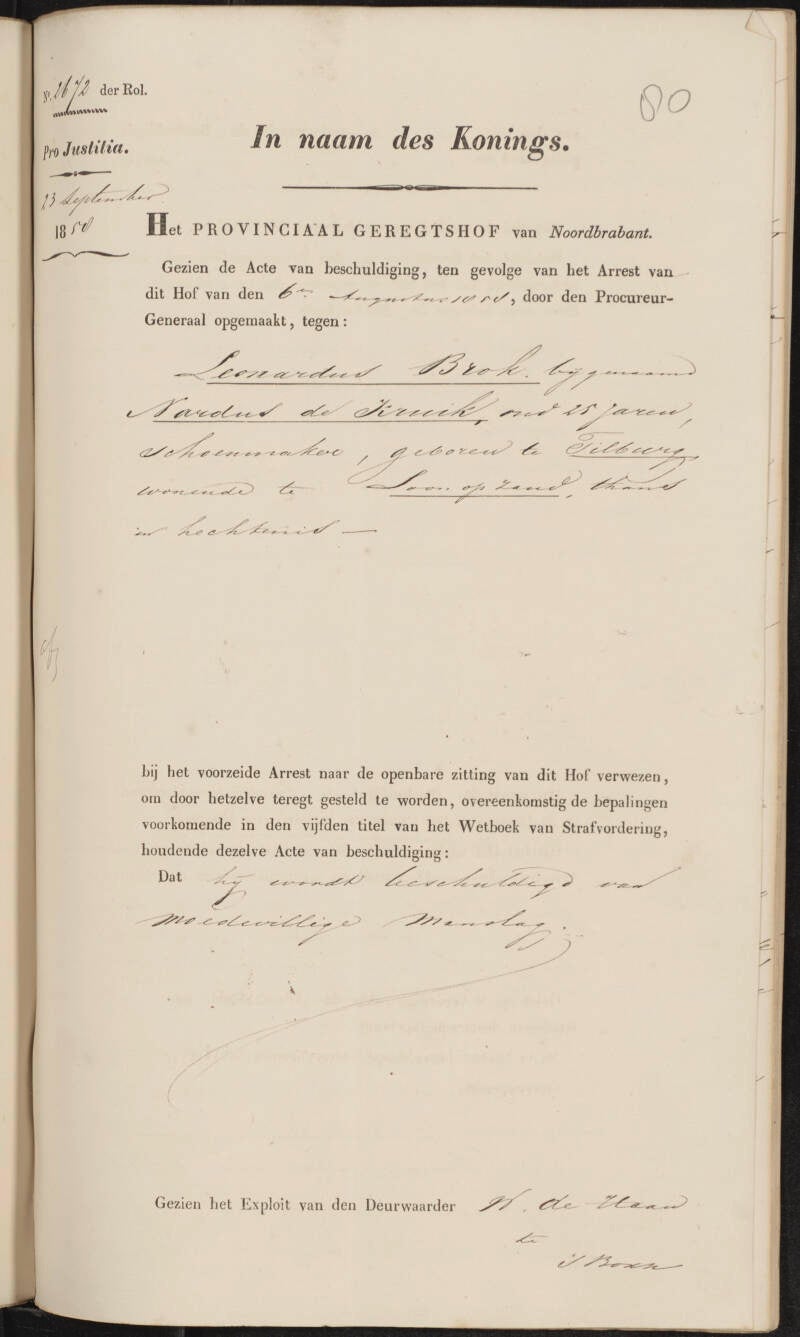 N. 2672 der Rol.
80
Pro Justitia.
In naam des Konings.
23 September
1850
Het PROVINCIAAL GEREGTSHOF van Noordbrabant.
Gezien de Acte van beschuldiging, ten gevolge van het Arrest van
dit Hof van den 6en Augustus 1850, door den Procureur-
Generaal opgemaakt, tegen:
Leonardus Brok. bygenaamd
Nardus de Kruik, oud 25 Jaren,
schoenmaker, geboren te Tilburg,
wonende te Loon op zand, thans
in hechtenis —
bij het voorzeide Arrest naar de openbare zitting van dit Hof verwezen,
om door hetzelve teregt gesteld te worden, overeenkomstig de bepalingen
voorkomende in den vijfden titel van het Wetboek van Strafvordering,
houdende dezelve Acte van beschuldiging:
Dat hij wordt beschuldigd van
moedwillige Manslag.
Gezien het Exploit van den Deurwaarder W. de Haan
te